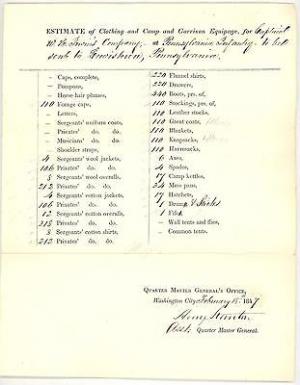 ESTIMATE of Clothing and Camp and Garrison Equipage, for Captain
W. H. Irwin's Company, Pennsylvania Infantry, to be
sent to Lewistown, Pennsylvania.
– Caps, complete,
– Pompons,
– Horse hair plumes,
110 Forage caps,
– Letters,
– Sergeants' uniform coats,
– Privates' do. do.
– Musicians' do. do.
– Shoulder straps,
4 Sergeants' wool jackets,
106 Privates' do. do.
8 Sergeants' wool overalls,
212 Privates' do. do.
4 Sergeants' cotton jackets,
106 Privates' do. do.
12 Sergeants' cotton overalls,
Privates' do. do.
8 Sergeants' cotton shirts,
212 Privates' do. do.
220 Flannel shirts,
220 Drawers,
440 Boots, prs. of,
110 Stockings, prs. of,
110 Leather stocks,
110 Great coats,
110 Blankets,
110 Knapsacks,
110 Haversacks,
6 Axes,
4 Spades,
17 Camp kettles,
34 Mess pans,
17 Hatchets,
1 Drum & Sticks
1 Fife
– Wall tents and flies,
– Common tents.
QUARTER MASTER GENERAL'S OFFICE,
Washington City, February 15, 1847
Henry Stanton
Asst. Quarter Master General.